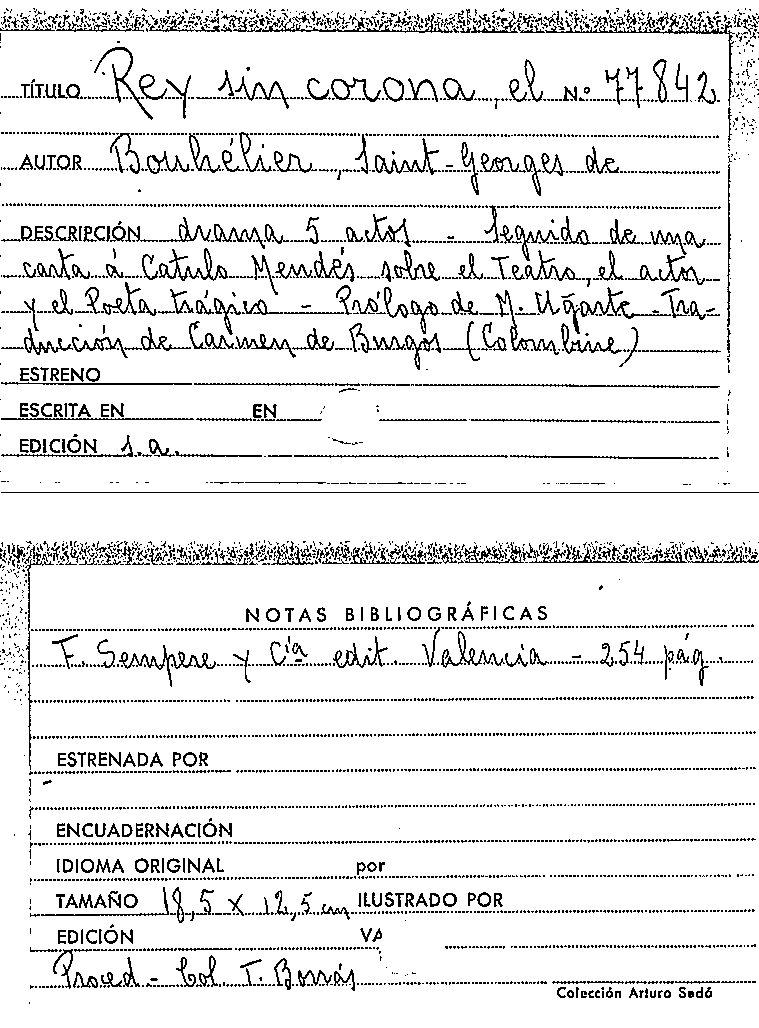 TÍTULO Rey sin corona, el N.º 77842
AUTOR Bouhélier, Saint-Georges de
DESCRIPCIÓN drama 5 actos - Seguido de una
carta á Catulo Mendés sobre el Teatro, el actor
y el Poeta trágico - Prólogo de M. Ugarte - Tra-
ducción de Carmen de Burgos (Colombine)
ESTRENO
ESCRITA EN EN
EDICIÓN s.a.
NOTAS BIBLIOGRÁFICAS
F. Sempere y Cía edit. Valencia - 254 pág.
ESTRENADA POR
ENCUADERNACIÓN
IDIOMA ORIGINAL por
TAMAÑO 18,5 x 12,5 cm ILUSTRADO POR
EDICIÓN VA
Proced - Col. T. Borrás
Colección Arturo Sedó